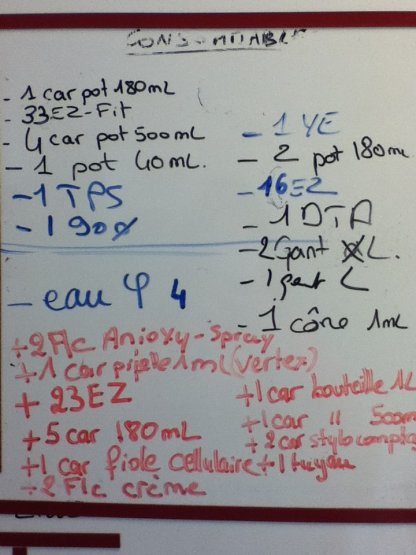 CONSOMMABLE
- 1 car pot 180mL
- 33EZ-Fit
- 4 car pot 500mL
- 1 pot 40mL.
- 1 TPS
- 1 90%
- eau φ 4
- 1 YE
- 2 pot 180mL
- 16EZ
- 1 DTA
- 2 Gant XL.
- 1 gant L
- 1 cône 1mL
+ 2 Flc Anioxy-Spray
+ 1 car pipette 1mL (vertex)
+ 23EZ
+ 5 car 180mL
+ 1 car fiole cellulaire + 1 tuyau
+ 2 Flc crème
+ 1 car bouteille 1L
+ 1 car " 500m
+ 2 car stylo comptag